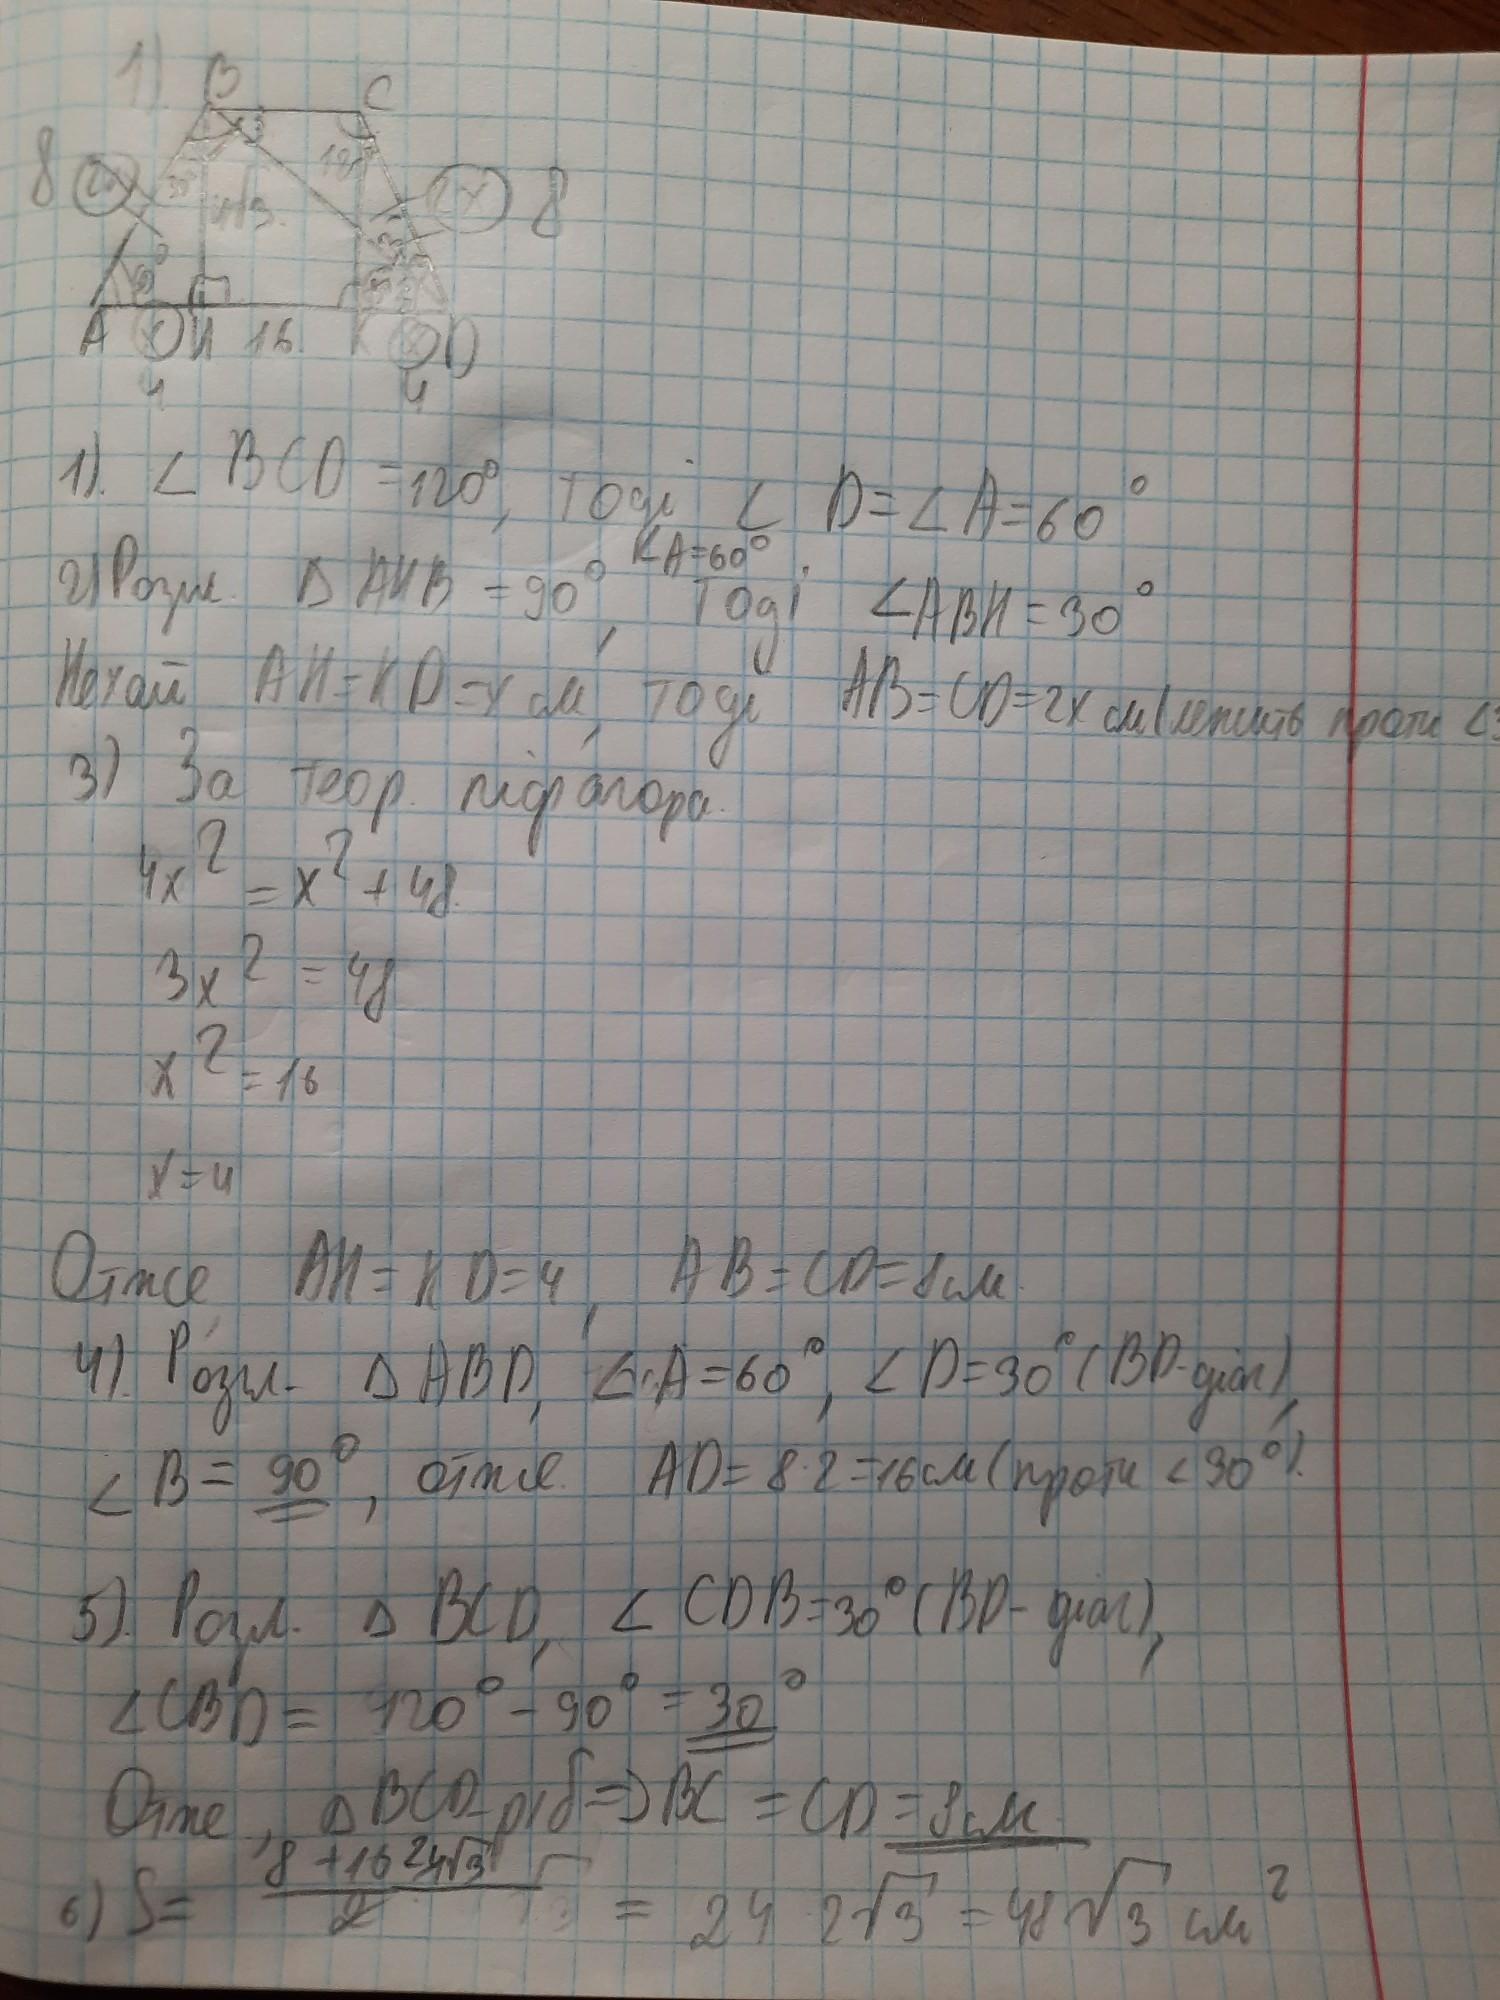 1)
B C
8 2x 4√3 2x 8
A x H 16 K x D
4 4
1). ∠ BCD = 120°, тоді ∠ D = ∠ A = 60°
∠A = 60°
2) Розгл. Δ AHB = 90°, тоді ∠ABH = 30°
Нехай AH = KD = x см, тоді AB = CD = 2x см (лежить проти ∠3
3) За теор. піфагора.
4x² = x² + 48
3x² = 48
x² = 16
x = 4
Отже, AH = KD = 4, AB = CD = 8 см.
4). Розгл. Δ ABD, ∠A = 60°, ∠D = 30° (BD - діаг),
∠B = 90°, отже. AD = 8·2 = 16 см (проти ∠30°).
5). Розгл. Δ BCD, ∠CDB = 30° (BD - діаг),
∠CBD = 120° - 90° = 30°
Отже, Δ BCD - р/б => BC = CD = 8 см.
6) S = 8 + 16 / 2 4√3 = 24 2√3 = 48√3 см²